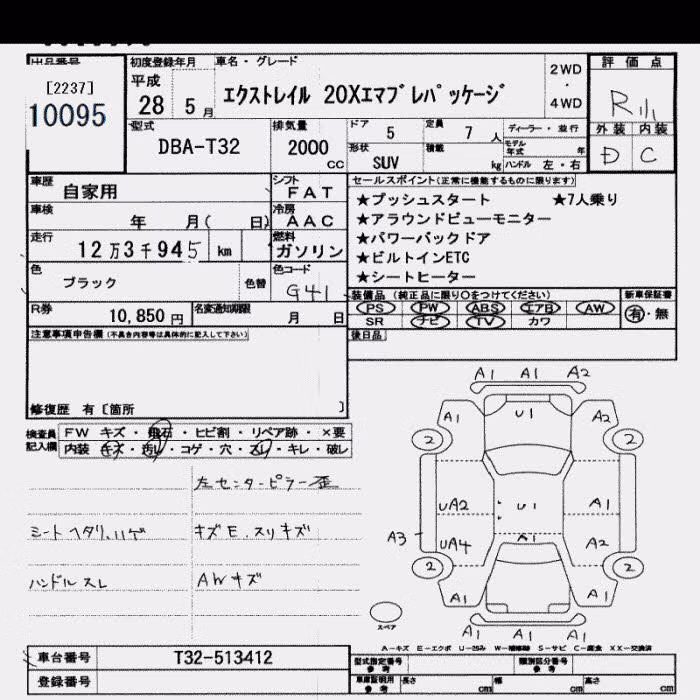 出品番号
[2237]
10095
初度登録年月
平成
28 5 月
車名・グレード
エクストレイル 20Xエマブレパッケージ
2WD
・
4WD
評価点
R
外装 内装
D C
型式
DBA-T32
排気量
2000 CC
ドア 5
定員 7 人
ディーラー・並行
形状 SUV
積載 kg
モデル年式 年
ハンドル 左・右
車歴
自家用
シフト
FAT
車検
年 月( 日)
冷房
AAC
走行
12万3千945 km
燃料
ガソリン
色
ブラック
色替
色コード
G41
R券
10,850 円
名変通知期限
月 日
セールスポイント(正常に機能するものに限ります)
★プッシュスタート ★7人乗り
★アラウンドビューモニター
★パワーバックドア
★ビルトインETC
★シートヒーター
装備品 (純正品に限り○をつけてください)
PS PW ABS エアB AW
SR ナビ TV カワ
新車保証書
有・無
後日品
注意事項申告欄 (不具合内容等は具体的に記入して下さい)
修復歴 有〔箇所 〕
検査員記入欄
FW キズ・飛石・ヒビ割・リペア跡・×要
内装 キズ・汚レ・コゲ・穴・スレ・キレ・破レ
左センターピラー歪
シートヘタリ、ハゲ
キズE.スリキズ
ハンドルスレ
AWキズ
A1 A1 A2
A1 U1 A2
2 2
UA2 U1 A1
A3 UA4 A1 A2
2 2
A1 A1
A1 A1 A1
スペア
A―キズ E―エクボ U―凹み W―補修跡 S―サビ C―腐食 XX―交換済
車台番号
T32-513412
登録番号
型式指定番号 参考
類別区分番号 参考
車庫証明用 参考
長さ cm 幅 cm 高さ cm